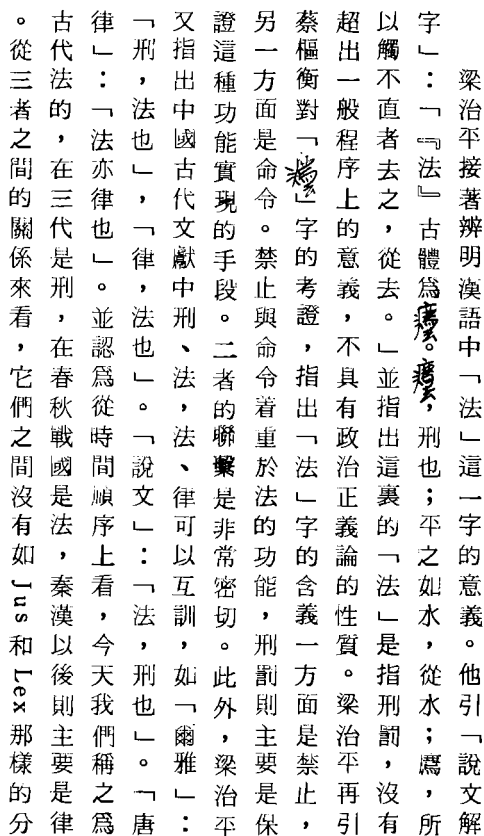 梁治平接著辨明漢語中「法」這一字的意義。他引「說文解
字」：「『法』古體爲灋。灋，刑也；平之如水，從水；廌，所
以觸不直者去之，從去。」並指出這裏的「法」是指刑罰，沒有
超出一般程序上的意義，不具有政治正義論的性質。梁治平再引
蔡樞衡對「灋」字的考證，指出「法」字的含義一方面是禁止，
另一方面是命令。禁止與命令着重於法的功能，刑罰則主要是保
證這種功能實現的手段。二者的聯繫是非常密切。此外，梁治平
又指出中國古代文獻中刑、法，法、律可以互訓，如「爾雅」：
「刑，法也」，「律，法也」。「說文」：「法，刑也」。「唐
律」：「法亦律也」。並認爲從時間順序上看，今天我們稱之爲
古代法的，在三代是刑，在春秋戰國是法，秦漢以後則主要是律
。從三者之間的關係來看，它們之間沒有如Jus和Lex那樣的分